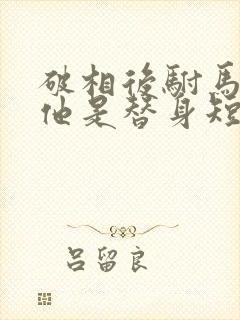 破相後駙馬
他是替身短
呂留良